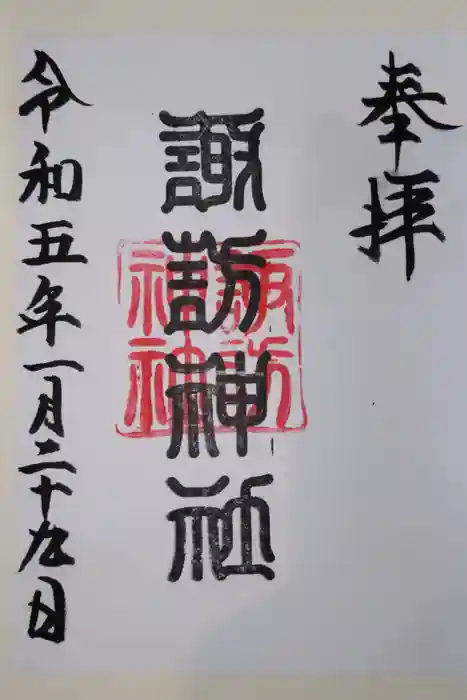 奉拝
諏訪神社
諏訪神社
令和五年一月二十九日